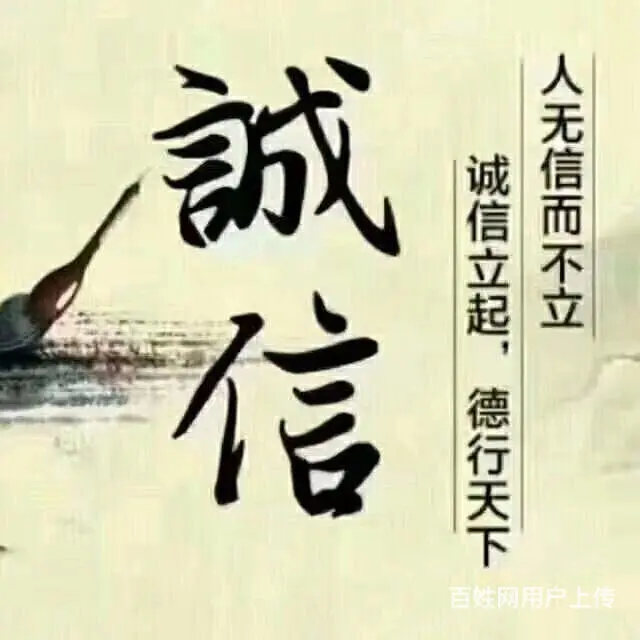 人无信而不立
诚信立起，德行天下
誠信
百姓网用户上传